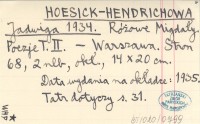 HOESICK-HENDRICHOWA
Jadwiga 1934. Różowe Migdały.
Poezje T. II. - Warszawa. Stron
68, 2 nlb, okl., 14 x 20 cm.
Data wydania na okładce: 1935.
Tatr dotyczy s. 31.